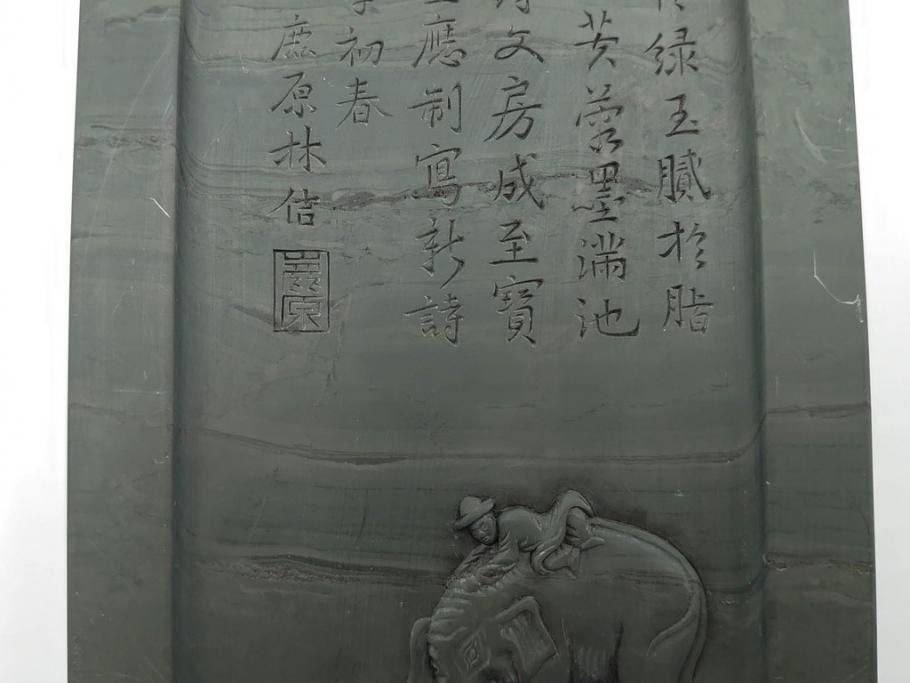 綠玉膩於脂
芙蓉墨滿池
文房成至寶
應制寫新詩
初春
鹿原林佶
鹿原